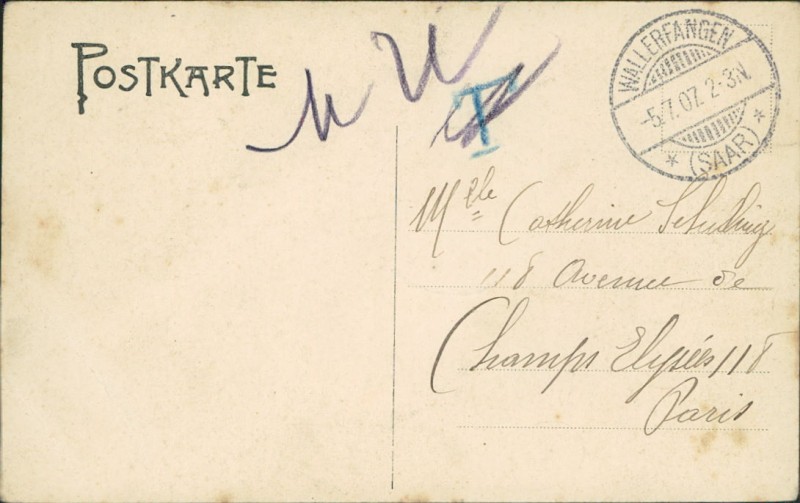 POSTKARTE
WALLERFANGEN
-5.7.07. 2-3N.
* (SAAR) *
T
Mlle Catherine
118 Avenue de
Champs Elysées 118
Paris